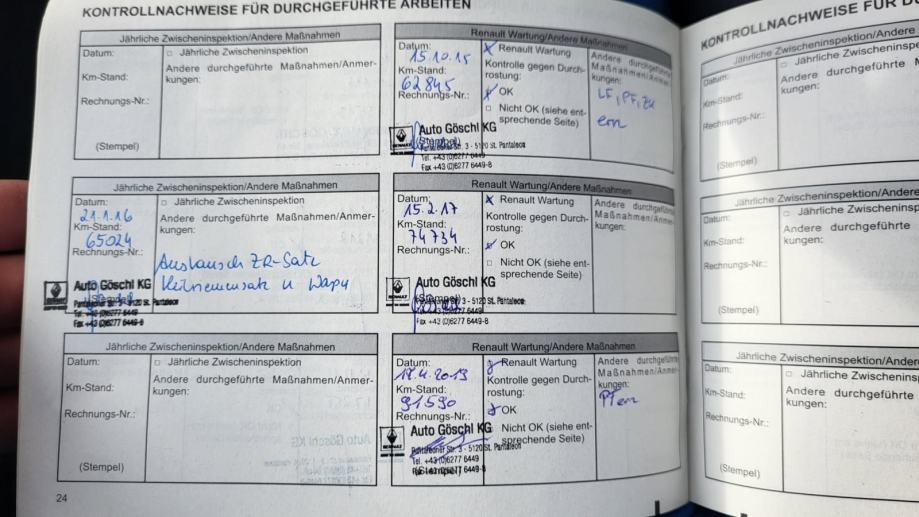 KONTROLLNACHWEISE FÜR DURCHGEFÜHRTE ARBEITEN
Jährliche Zwischeninspektion/Andere Maßnahmen
Datum:
□ Jährliche Zwischeninspektion
Andere durchgeführte Maßnahmen/Anmer-
kungen:
Km-Stand:
Rechnungs-Nr.:
(Stempel)
Renault Wartung/Andere Maßnahmen
Datum:
15.10.15
Km-Stand:
62845
Rechnungs-Nr.:
Renault Wartung
Kontrolle gegen Durch-
rostung:
OK
□ Nicht OK (siehe ent-
sprechende Seite)
Andere durchgeführte
Maßnahmen/Anmer-
kungen:
LF, PF, ZK
ern
Auto Göschl KG
(Stempel)
Str. 3 - 5120 St. Pantaleon
Tel. +43 (0)6277 6449
Fax +43 (0)6277 6449-8
Jährliche Zwischeninspektion/Andere Maßnahmen
Datum:
21.1.16
Km-Stand:
65024
Rechnungs-Nr.:
□ Jährliche Zwischeninspektion
Andere durchgeführte Maßnahmen/Anmer-
kungen:
Austausch ZR-Satz
u Wapu
Auto Göschl KG
Str. 3 - 5120 St. Pantaleon
Tel. +43 (0)6277 6449
Fax +43 (0)6277 6449-8
Renault Wartung/Andere Maßnahmen
Datum:
15.2.17
Km-Stand:
74734
Rechnungs-Nr.:
Renault Wartung
Kontrolle gegen Durch-
rostung:
OK
□ Nicht OK (siehe ent-
sprechende Seite)
Andere durchgeführte
Maßnahmen/Anmer-
kungen:
Auto Göschl KG
(Stempel)
Str. 3 - 5120 St. Pantaleon
Tel. +43 (0)6277 6449
Fax +43 (0)6277 6449-8
Jährliche Zwischeninspektion/Andere Maßnahmen
Datum:
□ Jährliche Zwischeninspektion
Andere durchgeführte Maßnahmen/Anmer-
kungen:
Km-Stand:
Rechnungs-Nr.:
(Stempel)
Renault Wartung/Andere Maßnahmen
Datum:
18.4.2019
Km-Stand:
91590
Rechnungs-Nr.:
Renault Wartung
Kontrolle gegen Durch-
rostung:
OK
Nicht OK (siehe ent-
sprechende Seite)
Andere durchgeführte
Maßnahmen/Anmer-
kungen:
Auto Göschl KG
Str. 3 - 5120 St. Pantaleon
Tel. +43 (0)6277 6449
Fax +43 (0)6277 6449-8
(Stempel)
24
KONTROLLNACHWEISE FÜR D
Jährliche Zwischeninspektion/Andere
Datum:
□ Jährliche Zwischeninsp
Andere durchgeführte
kungen:
Km-Stand:
Rechnungs-Nr.:
(Stempel)
Jährliche Zwischeninspektion/Andere
Datum:
□ Jährliche Zwischeninsp
Andere durchgeführte
kungen:
Km-Stand:
Rechnungs-Nr.:
(Stempel)
Jährliche Zwischeninspektion/Andere
Datum:
□ Jährliche Zwischeninsp
Andere durchgeführte
kungen:
Km-Stand:
Rechnungs-Nr.:
(Stempel)